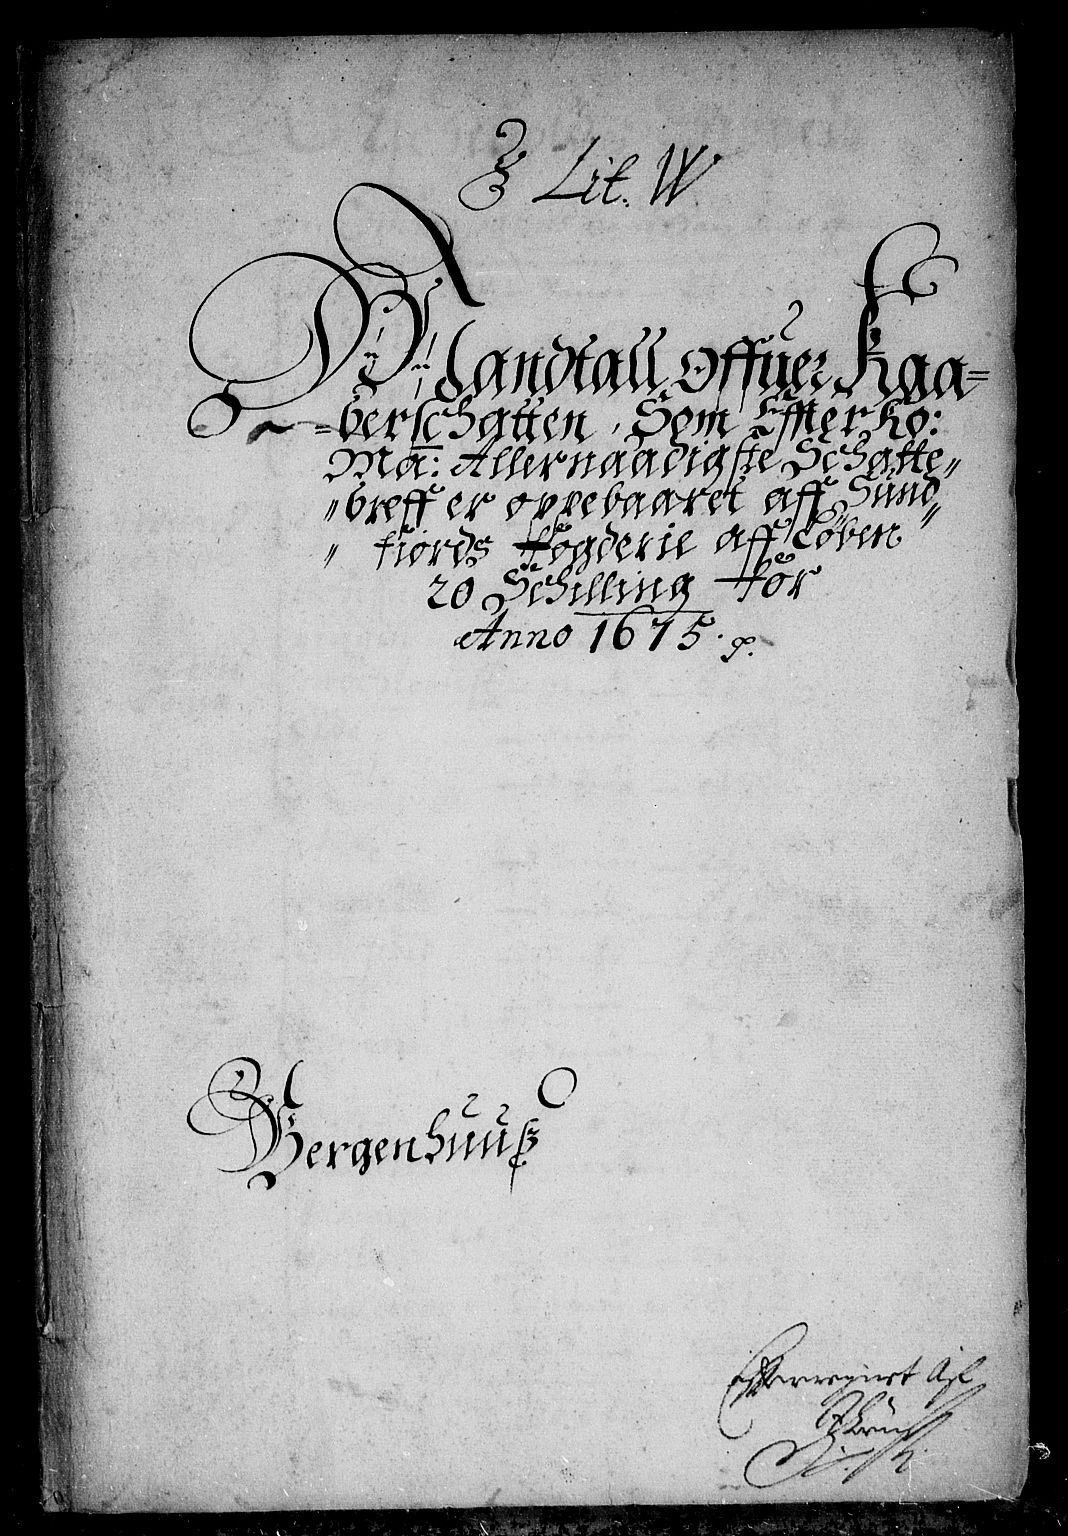 Lit. W
Mandtall offuer Kaa=
=berschatten, Som Effter Ko:
Ma: Allernaadigste Schatte„
„breff er oppebaaret aff Sund„
„fiords fogderie aff Løben„
20 Schilling för
Anno 1675.
Bergenhuuß
Effterregnet